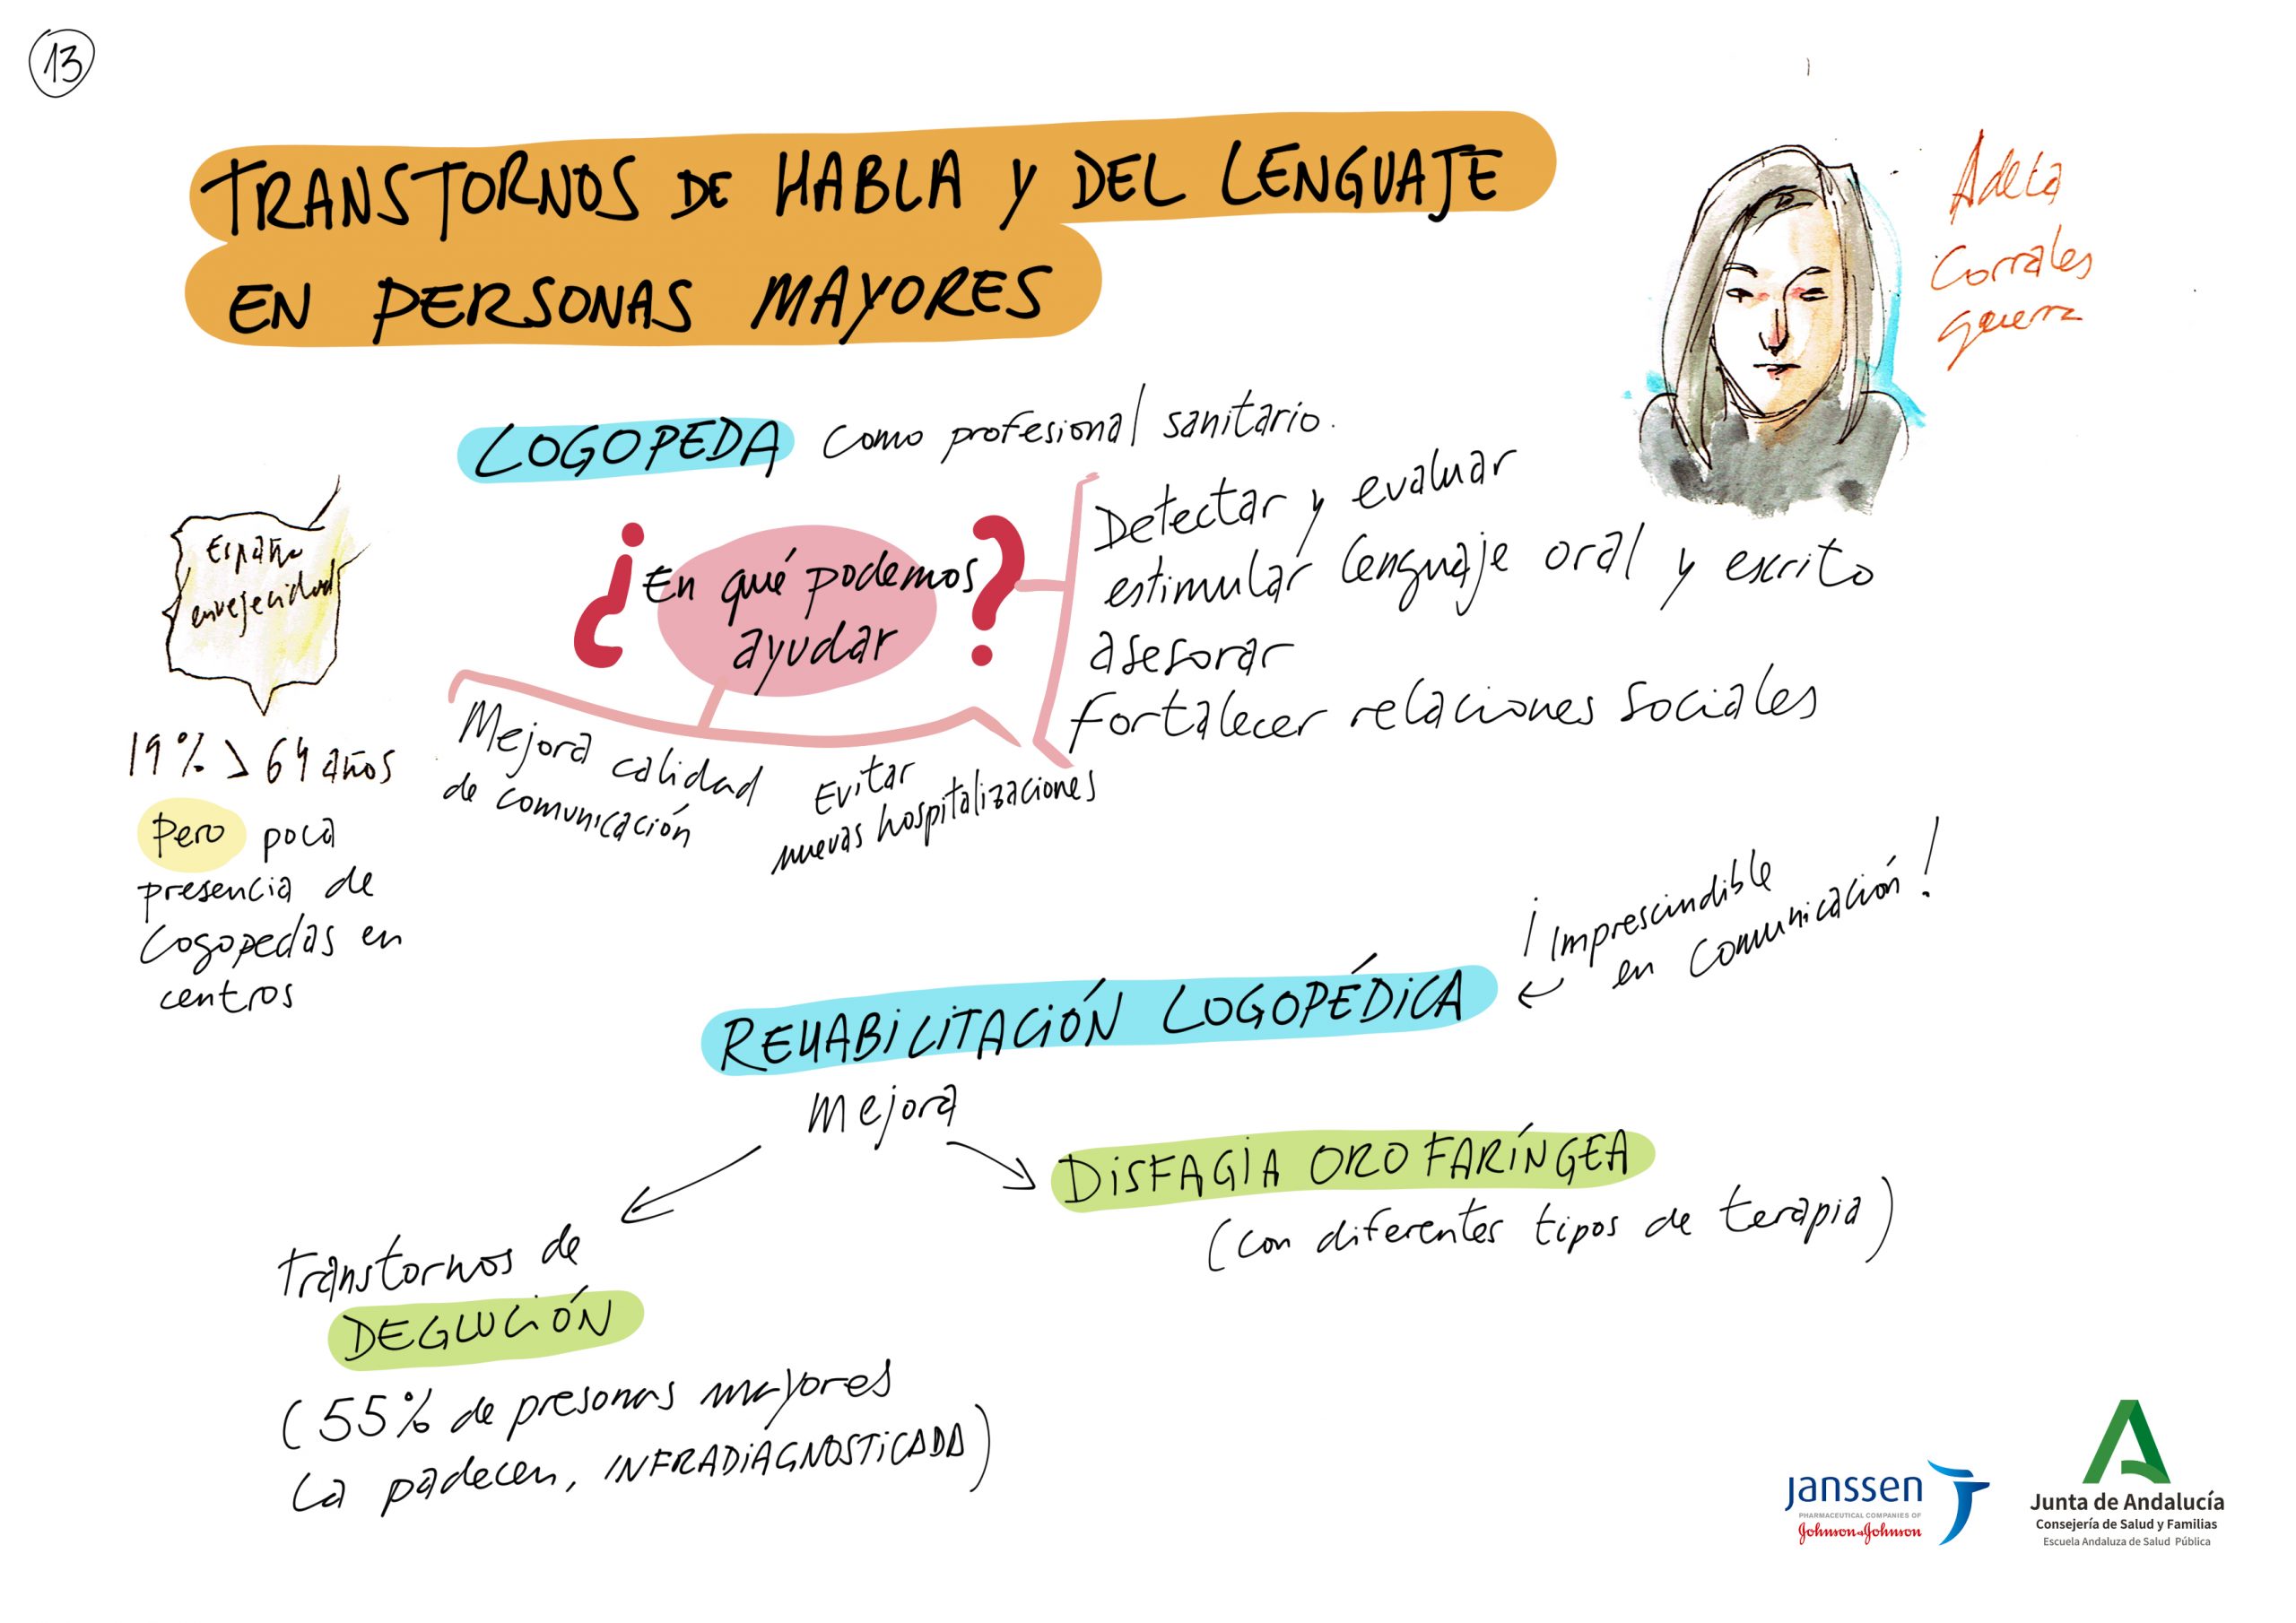 13
TRANSTORNOS DE HABLA Y DEL LENGUAJE
EN PERSONAS MAYORES
Adela
Corrales
Guerra
LOGOPEDA como profesional sanitario.
España
envejecida
19% > 64 años
Pero poca
presencia de
logopedas en
centros
¿En qué podemos
ayudar?
Detectar y evaluar
estimular lenguaje oral y escrito
asesorar
fortalecer relaciones sociales
Mejora calidad
de comunicación
Evitar
nuevas hospitalizaciones
¡Imprescindible
← en comunicación!
REHABILITACIÓN LOGOPÉDICA
mejora
DISFAGIA OROFARÍNGEA
(con diferentes tipos de terapia)
transtornos de
DEGLUCIÓN
(55% de presonas mayores
la padecen, INFRADIAGNOSTICADA)
janssen
PHARMACEUTICAL COMPANIES OF
Johnson & Johnson
Junta de Andalucía
Consejería de Salud y Familias
Escuela Andaluza de Salud Pública